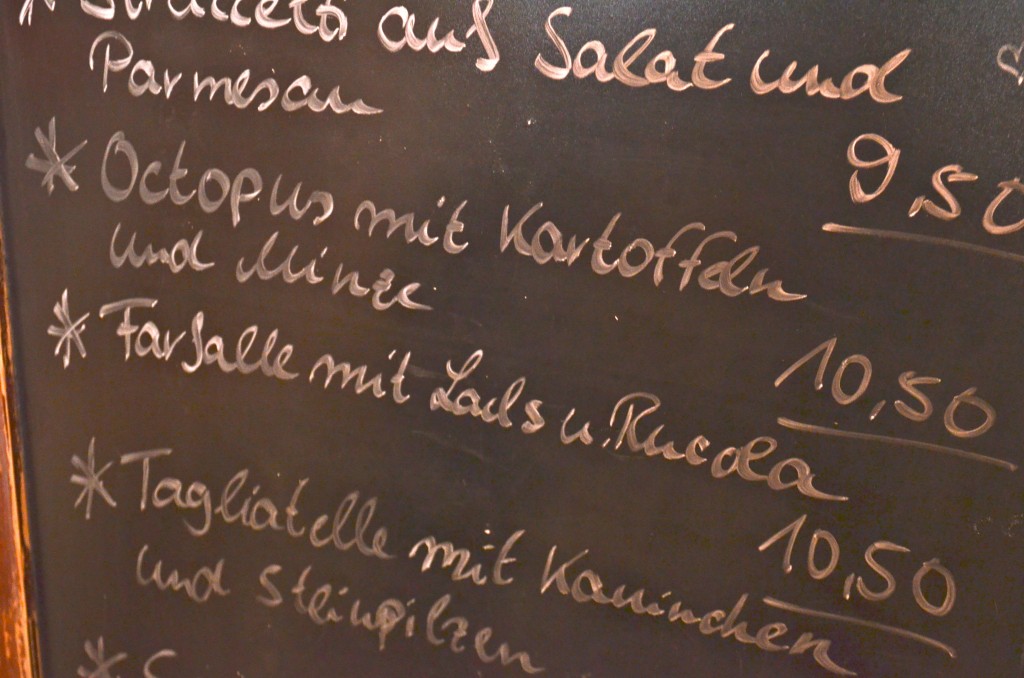 * Straccetti auf Salat und
Parmesan
9,50
* Octopus mit Kartoffeln
und Minze
10,50
* Farfalle mit Lachs u. Rucola
10,50
* Tagliatelle mit Kaninchen
und Steinpilzen
*